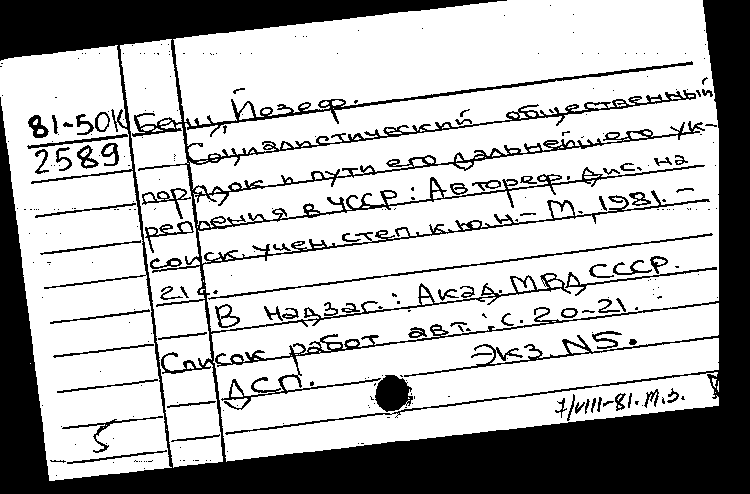 81-50К
2589
Бенш, Йозеф.
Социалистический общественный
порядок и пути его дальнейшего ук-
репления в ЧССР : Автореф. дис. на
соиск. учен. степ. к.ю.н. - М., 1981. -
21 с.
В надзаг.: Акад. МВД СССР.
Список работ авт.: с. 20-21.
ДСП. Экз. N5.
5
7/VIII-81. м.з.